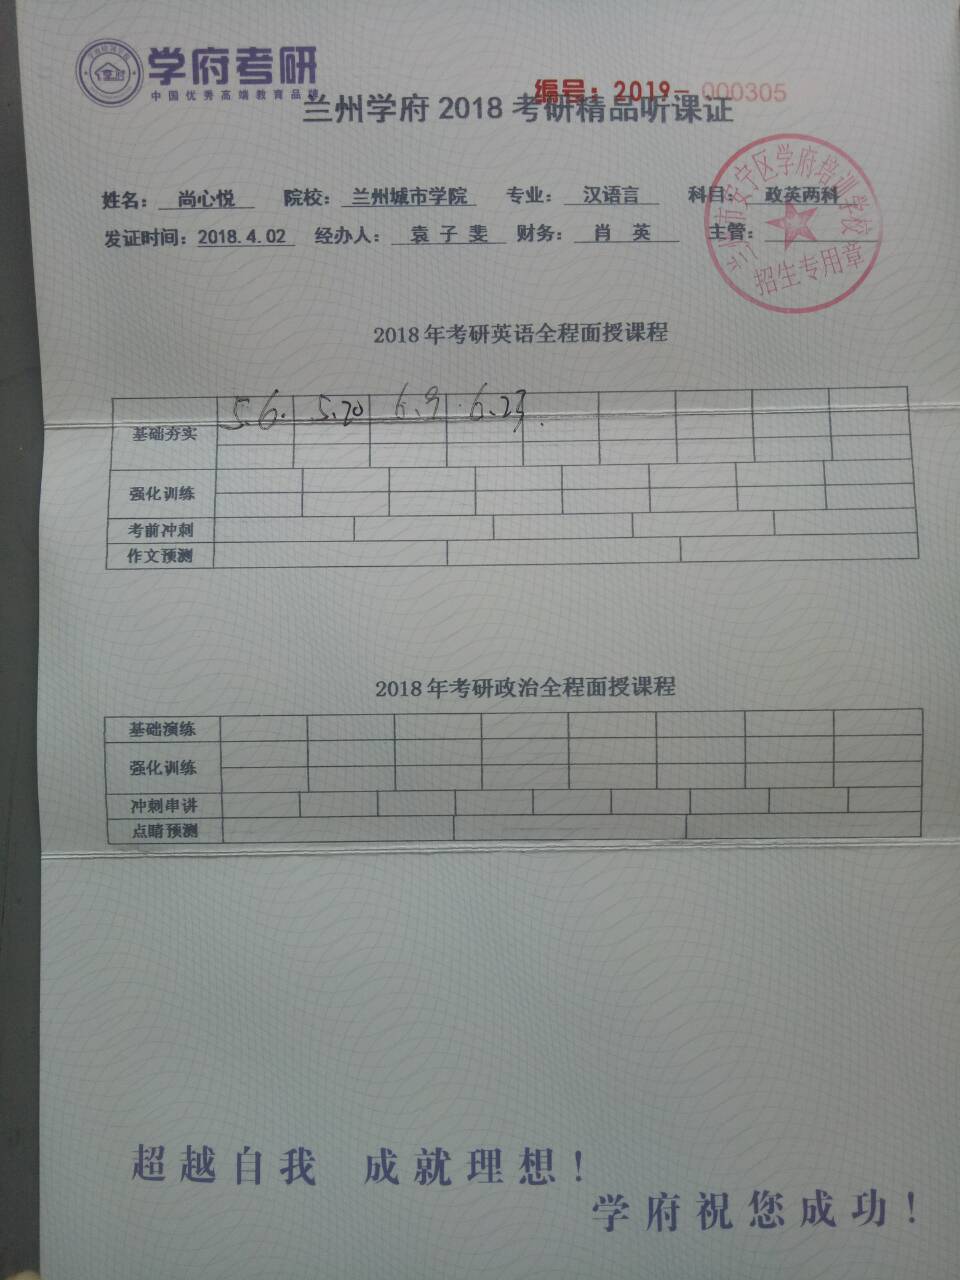 学府考研
中国优秀高端教育品牌
编号：2019-000305
兰州学府2018考研精品听课证
姓名：尚心悦 院校：兰州城市学院 专业：汉语言 科目：政英两科
发证时间：2018.4.02 经办人：袁子斐 财务：肖 英 主管：
兰州市安宁区学府培训学校
招生专用章
2018年考研英语全程面授课程
5.6. 5.20 6.9 6.23.
基础夯实
强化训练
考前冲刺
作文预测
2018年考研政治全程面授课程
基础演练
强化训练
冲刺串讲
点睛预测
超越自我 成就理想！
学府祝您成功！